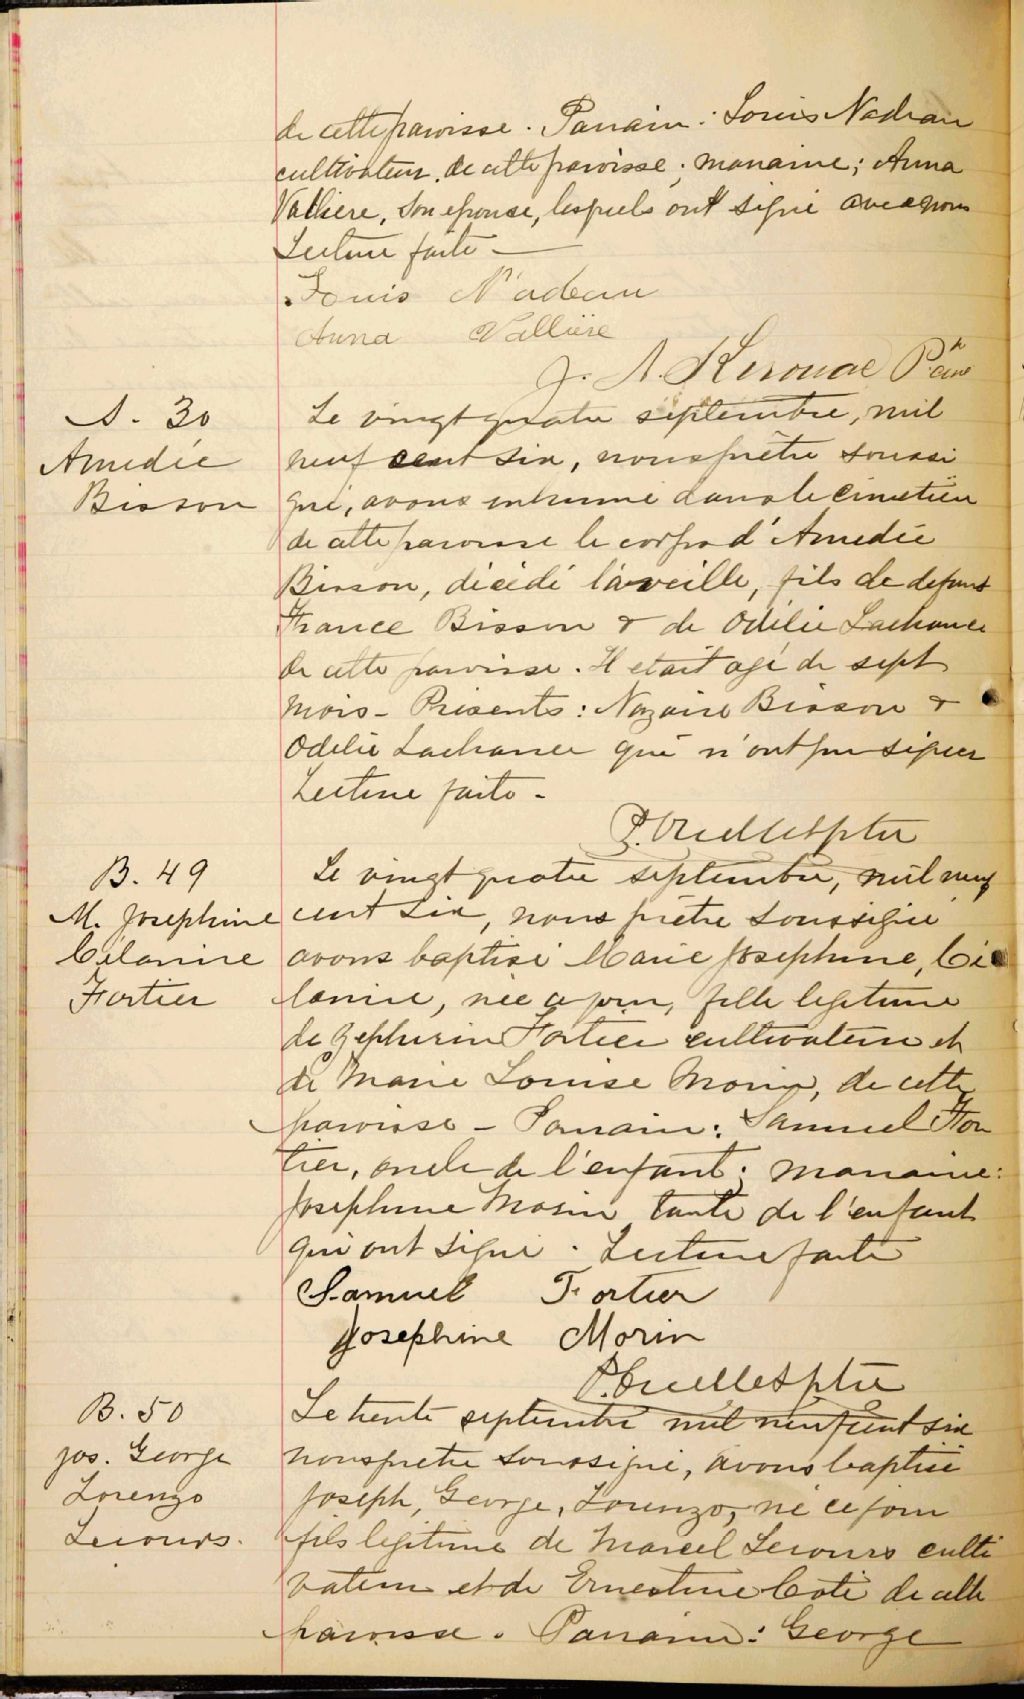 de cette paroisse. Parrain: Louis Nadeau
cultivateur de cette paroisse; marraine; Anna
Vallière, son epouse, lesquels ont signé avec nous
Lecture faite —
Louis Nadeau
Anna Vallière
J. A. Kerouac Ptre curé
S. 30
Amedée
Bisson
Le vingt quatre septembre, mil
neuf cent six, nous prêtre soussi
gné, avons inhumé dans le cimetière
de cette paroisse le corps d'Amedée
Bisson, décédé la veille, fils de defunt
France Bisson & de Odélie Lachance
de cette paroisse. Il etait agé de sept
mois - Présents: Nazaire Bisson &
Odélie Lachance qui n'ont pu signer
Lecture faite -
P. Ouellet ptre
B. 49
M. Josephine
Célanire
Fortier
Le vingt quatre septembre, mil neuf
cent six, nous prêtre soussigné
avons baptisé Marie Josephine, Cé
lanire, née ce jour, fille legitime
de Zephirin Fortier cultivateur et
de Marie Louise Morin, de cette
paroisse - Parrain: Samuel For
tier, oncle de l'enfant; marraine:
Josephine Morin tante de l'enfant
qui ont signé. Lecture faite
Samuel Fortier
Josephine Morin
P. Ouellet ptre
B. 50
Jos. George
Lorenzo
Lecours.
Le trente septembre mil neuf cent six
nous pretre soussigné, avons baptisé
Joseph, George, Lorenzo, né ce jour
fils legitime de Marcel Lecours culti
vateur et de Ernestine Coté de cette
paroisse. Parrain: George